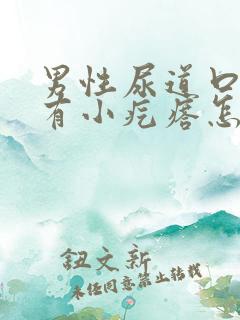 男性尿道口
有小疙瘩怎
钮文新
未经同意禁止转载